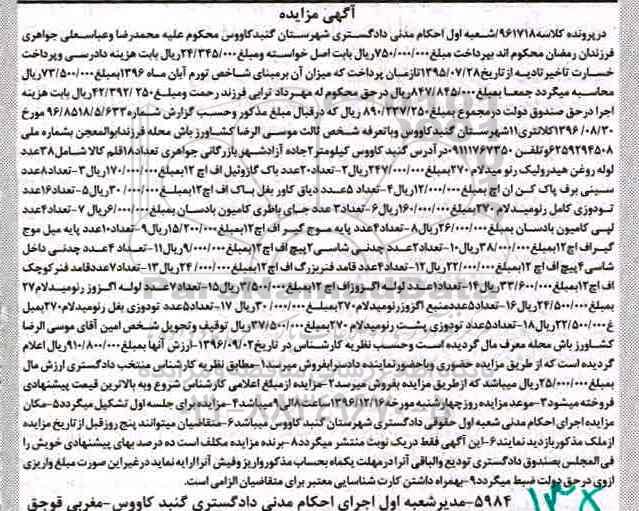 آگهی مزایده
درپرونده کلاسه۹۶۱۷۱۸/شعبه اول احکام مدنی دادگستری شهرستان گنبدکاووس محکوم علیه محمدرضا وعباسعلی جواهری
فرزندان رمضان محکوم اند بپرداخت مبلغ۷۵۰/۰۰۰/۰۰۰ریال بابت اصل خواسته ومبلغ۲۴/۳۴۵/۰۰۰ریال بابت هزینه دادرسی وپرداخت
خسارت تاخیر تادیه از تاریخ۱۳۹۵/۰۷/۲۸تازمان پرداخت که میزان آن برمبنای شاخص تورم آبان ماه ۱۳۹۶بمبلغ۷۳/۵۰۰/۰۰۰ریال
محاسبه میگردد جمعا بمبلغ۸۴۷/۸۴۵/۰۰۰ریال درحق محکوم له مهرداد ترابی فرزند رحمت ومبلغ۴۲/۳۹۲/۲۵۰ریال بابت هزینه
اجرا درحق صندوق دولت درمجموع بمبلغ۸۹۰/۲۳۷/۲۵۰ریال که درقبال مبلغ مذکور وحسب گزارش شماره۹۶/۸۵۱۸/۵/۶۳۳مورخ
۱۳۹۶/۰۸/۳۰کلانتری۱۱شهرستان گنبدکاووس وباتعرفه شخص ثالث موسی الرضا کشاورز باش محله فرزندابوالمعجن بشماره ملی
۶۲۵۹۲۹۴۵۰۸وتلفن ۰۹۱۱۱۷۶۷۳۵۰درآدرس گنبد کاووس کیلومتر۲جاده آزادشهربازرگانی جواهری تعداد۱۸قلم کالا شامل۳۸عدد
لوله روغن هیدرولیک رنو میدلام۲۷۰بمبلغ۲۴۷/۰۰۰/۰۰۰ریال۲-تعداد۲۰عدد باک گازوئیل اف اچ ۱۲بمبلغ۱۷۰/۰۰۰/۰۰۰ریال۳-تعداد۸عدد
سینی برف پاک کن ان اچ بمبلغ۱۲/۰۰۰/۰۰۰ریال۴-تعداد ۵عدد دیاق کاور بغل باک اف اچ۱۲بمبلغ۳۰/۰۰۰/۰۰۰ریال۵-تعداد۱۶عدد
تودوزی کامل رنومیدلام ۲۷۰بمبلغ۱۶۰/۰۰۰/۰۰۰ریال۶-تعداد۳عدد جای باطری کامیون بادسان بمبلغ۶/۰۰۰/۰۰۰ریال ۷-تعداد۴عدد
لپی کامیون بادسان بمبلغ۲۶/۰۰۰/۰۰۰ریال۸-تعداد۴عدد پایه موج گیر اف اچ۱۲بمبلغ۱۵/۲۰۰/۰۰۰ریال۹-تعداد۱۰عدد پایه میل موج
گیراف اچ۱۲بمبلغ۳۸/۰۰۰/۰۰۰ریال۱۰-تعداد۲عدد چدنی شاسی۲پیچ اف اچ ۱۲بمبلغ۹/۰۰۰/۰۰۰ریال۱۱-تعداد ۴عدد چدنی داخل
شاسی۴پیچ اف اچ ۱۲بمبلغ۲۲/۰۰۰/۰۰۰ریال۱۲-تعداد۴عدد قامد فنربزرگ اف اچ ۱۲بمبلغ۲۴/۰۰۰/۰۰۰ریال۱۳-تعداد۷عددقامد فنرکوچک
اف اچ۱۲بمبلغ۳۳/۶۰۰/۰۰۰ریال۱۴-تعداد۱عدد لوله اگزوزاف اچ ۱۲بمبلغ۳/۵۰۰/۰۰۰ریال۱۵-تعداد۷عدد لوله اگزوز رنومیدلام۲۷
بمبلغ۲۴/۵۰۰/۰۰۰ریال۱۶-تعداد۵عددمنبع اگزوزرنومیدلام۲۷۰بمبلغ۳۰/۰۰۰/۰۰۰ریال ۱۷-تعداد۵عدد تودوزی بغل رنومیدلام۲۷۰بمبل
غ۲۲/۵۰۰/۰۰۰ریال۱۸-تعداد۵عدد تودوزی پشت رنومیدلام ۲۷۰بمبلغ۳۷/۵۰۰/۰۰۰ریال توقیف وتحویل شخص امین آقای موسی الرضا
کشاورز باش محله معرف مال گردیده است وحسب نظریه کارشناس در تاریخ۱۳۹۶/۰۹/۰۲-ارزش آنها بمبلغ۹۱۰/۸۰۰/۰۰۰ریال اعلام
گردیده است که از طریق مزایده حضوری وباحضورنماینده دادسرابفروش میرسد۱-مطابق نظریه کارشناس منتخب دادگستری ارزش مال
بمبلغ۲۵/۰۰۰/۰۰۰ریال میباشد که ازطریق مزایده بفروش میرسد۲-مزایده از مبلغ اعلامی کارشناس شروع وبه بالاترین قیمت پیشنهادی
فروخته میشود۳-موعد مزایده روز چهارشنبه مورخه ۱۳۹۶/۱۲/۱۶ساعت۱۰-۹میباشد۴-مزایده برای جلسه اول تشکیل میگردد۵-مکان
مزایده اجرای احکام مدنی شعبه اول حقوقی دادگستری شهرستان گنبد کاووس میباشد۶-متقاضیان میتوانند پنج روزقبل از تاریخ مزایده
از ملک مذکور بازدید نمایند۶-این آگهی فقط دریک نوبت منتشر میگردد۸-برنده مزایده مکلف است ده درصد بهای پیشنهادی خویش را
فی المجلس بصندوق دادگستری تودیع والباقی آنرا درمهلت یکماه بحساب مذکورواریز وفیش آنرا ارایه نماید درغیراین صورت مبلغ واریزی
ازوی درحق دولت ضبط میگردد۹-بهمراه داشتن کارت شناسایی معتبر برای متقاضیان الزامی است.
۵۹۸۴-مدیرشعبه اول اجرای احکام مدنی دادگستری گنبد کاووس-مغربی قوجق